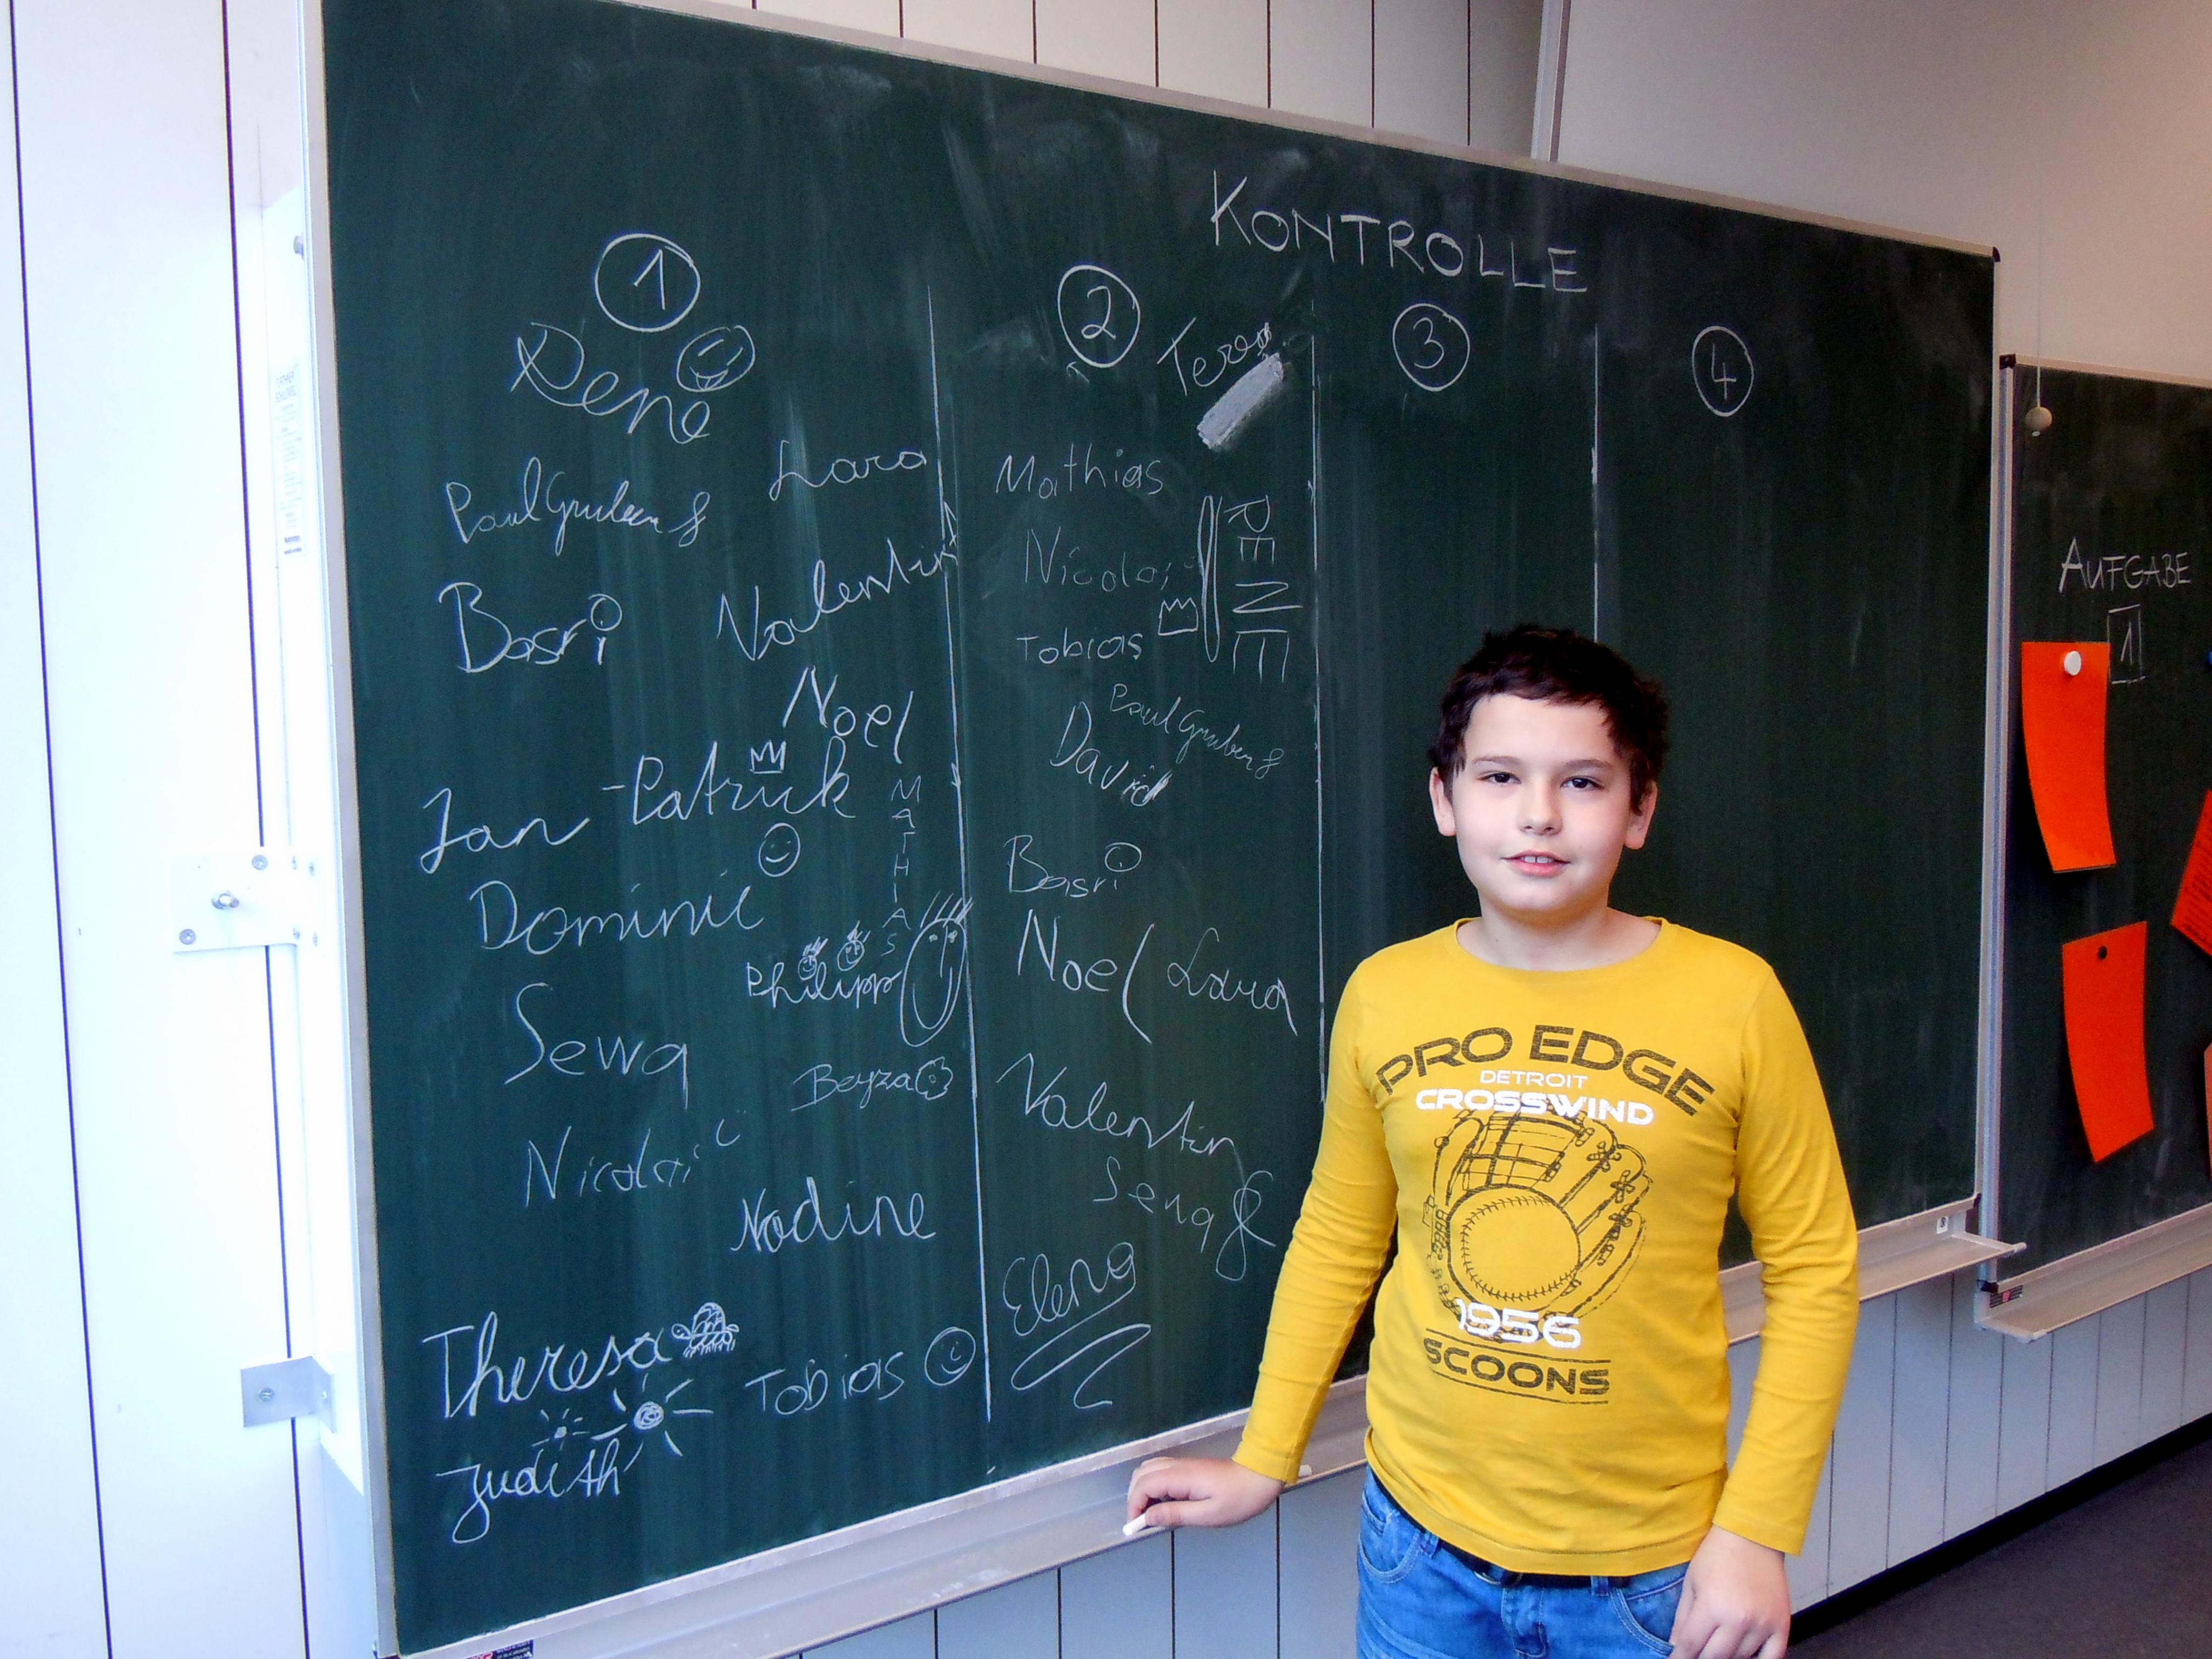 KONTROLLE
1
2
3
4
Rene
Lara
Paul Gruber
Basri
Valentin
Noel
Jan-Patrick
MATHIAS
Dominic
Philipp
Sewa
Beyza
Nicolai
Nadine
Theresa
Tobias
Judith
Mathias
Nicolai
RENE
Tobias
Paul Gruber
David
Basri
Noel
Lara
Valentin
Elena
AUFGABE
1
PRO EDGE
DETROIT
CROSSWIND
1956
SCOONS